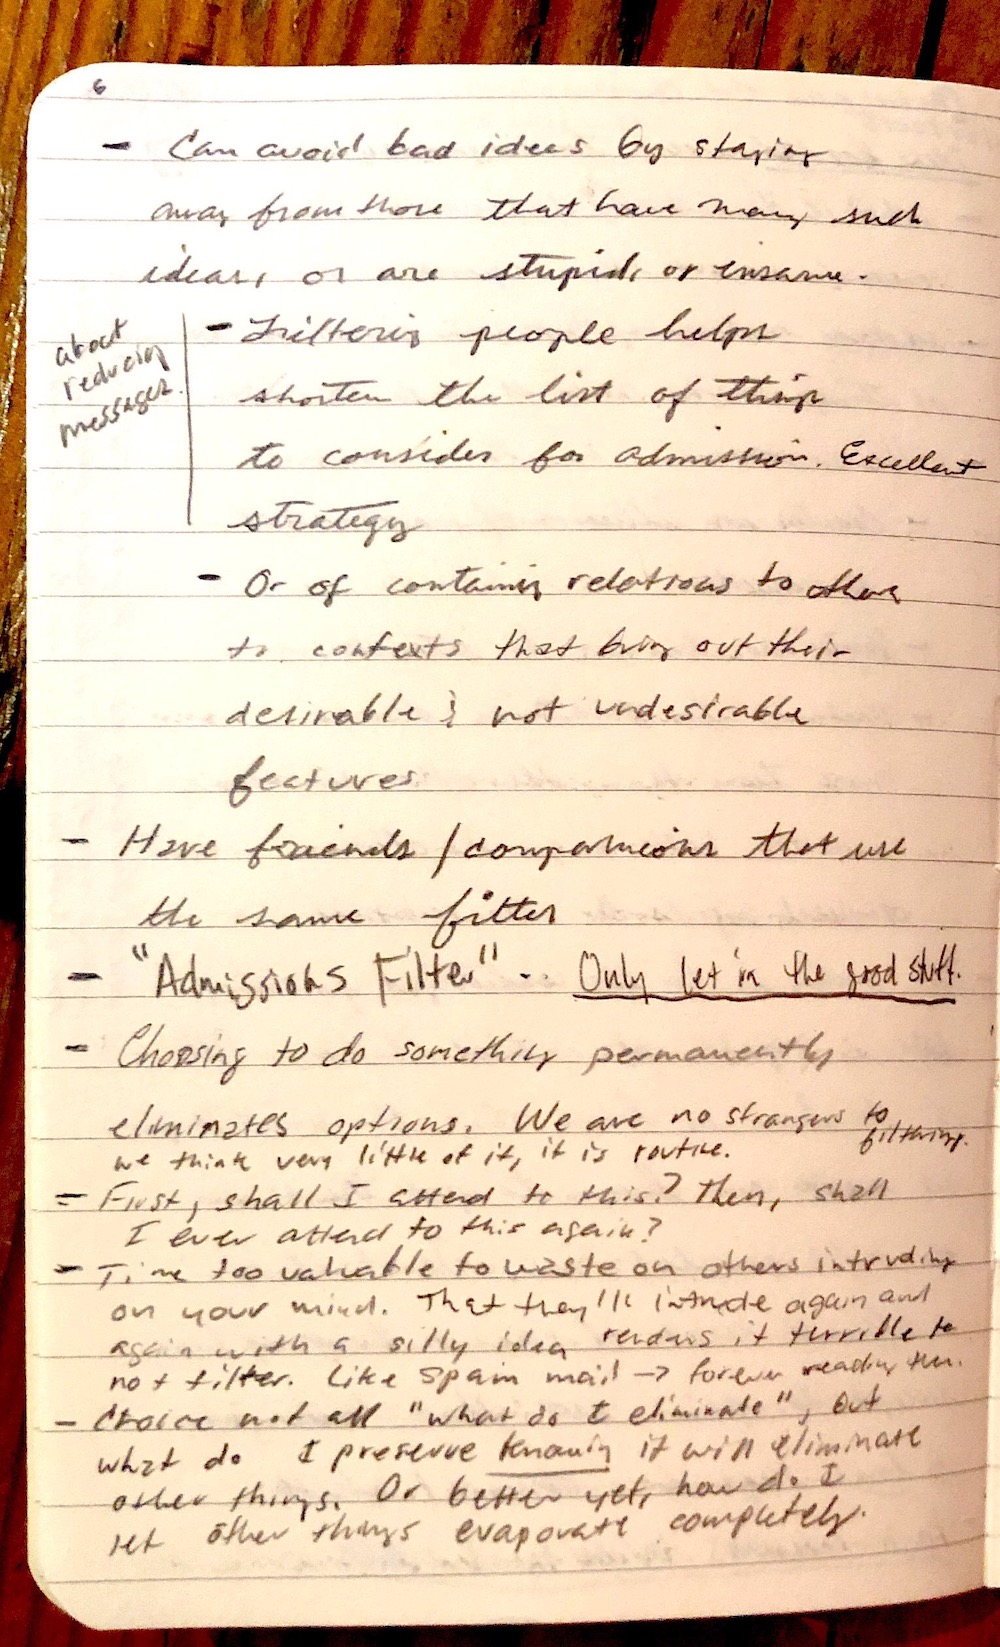 6
- Can avoid bad ideas by staying
away from those that have many such
ideas, or are stupid, or insane.
about
reducing
messages.
- Filtering people helps
shorten the list of things
to consider for admission. Excellent
strategy
- Or of containing relations to others
to contexts that bring out their
desirable & not undesirable
features
- Have friends / companions that use
the same filter
- "Admissions Filter" -. Only let in the good stuff.
- Choosing to do something permanently
eliminates options. We are no strangers to
filtering.
we think very little of it, it is routine.
- First, shall I attend to this? Then, shall
I ever attend to this again?
- Time too valuable to waste on others intruding
on your mind. That they'll intrude again and
again with a silly idea renders it terrible to
not filter. Like spam mail → forever reading them.
- Choice not all "what do I eliminate", but
what do I preserve knowing it will eliminate
other things. Or better yet, how do I
let other things evaporate completely.